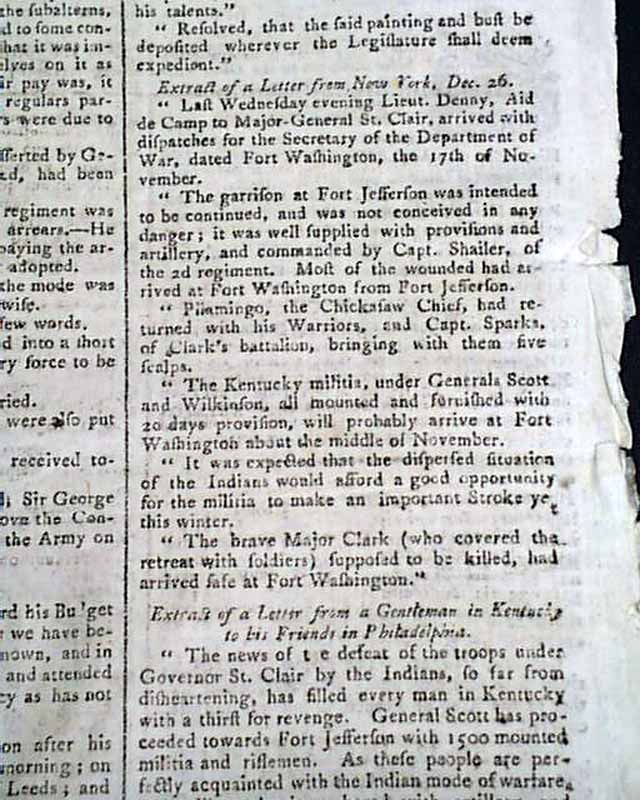 the subalterns,
d to some con-
hat it was im-
elves on it as
ir pay was, it
regulars par-
rs were due to
sserted by Ge-
ad, had been
regiment was
arrears.—He
paying the ar-
adopted.
the mode was
wise.
few words.
d into a short
ry force to be
ried.
were also put
received to-
Sir George
ove the Con-
the Army on
rd his Bu 'get
we have be-
nown, and in
and attended
cy as has not
on after his
morning; on
Leeds; and
his talents."
" Resolved, that the said painting and bust be
deposited wherever the Legislature shall deem
expedient."
Extract of a Letter from New York, Dec. 26.
" Last Wednesday evening Lieut. Denny, Aid
de Camp to Major-General St. Clair, arrived with
dispatches for the Secretary of the Department of
War, dated Fort Washington, the 17th of No-
vember.
" The garrison at Fort Jefferson was intended
to be continued, and was not conceived in any
danger; it was well supplied with provisions and
artillery, and commanded by Capt. Shailer, of
the 2d regiment. Most of the wounded had ar-
rived at Fort Washington from Fort Jefferson.
" Piiamingo, the Chickasaw Chief, had re-
turned with his Warriors, and Capt. Sparks,
of Clark's battalion, bringing with them five
scalps.
" The Kentucky militia, under Generals Scott
and Wilkinson, all mounted and furnished with
20 days provision, will probably arrive at Fort
Washington about the middle of November.
" It was expected that the dispersed situation
of the Indians would afford a good opportunity
for the militia to make an important Stroke yet
this winter.
" The brave Major Clark (who covered the
retreat with soldiers) supposed to be killed, had
arrived safe at Fort Washington."
Extract of a Letter from a Gentleman in Kentucky
to his Friends in Philadelphia.
" The news of t e defeat of the troops under
Governor St. Clair by the Indians, so far from
disheartening, has filled every man in Kentucky
with a thirst for revenge. General Scott has pro-
ceeded towards Fort Jefferson with 1500 mounted
militia and riflemen. As these people are per-
fectly acquainted with the Indian mode of warfare,